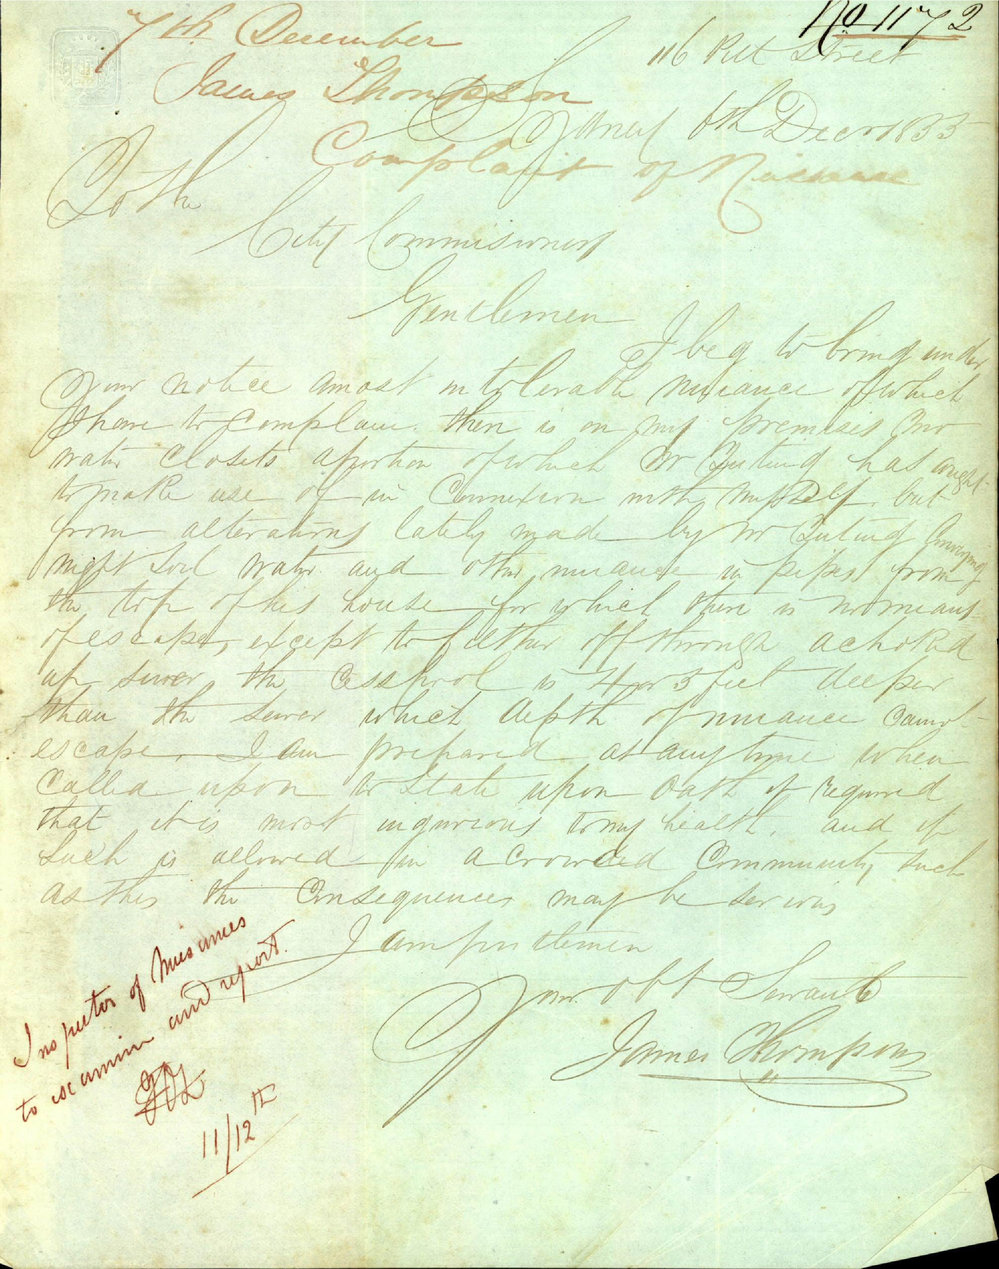 No 1172
7th December
James Thompson
Complaint of Nuisance
116 Pitt Street
Sydney 6th Decr 1855
To the
City Commisioners
Gentlemen
I beg to bring under
your notice a most intolerable nuisance of which
I have to complain. there is on my premises two
water closets a portion of which Mr Cuting has caught
to make use of in Connexion with myself. but
from alterations lately made by Mr Cuting conveying
night soil water and other nuisance in pipes from
the top of his house for which there is no means
of escape, except to filther off through a choked
up sewer the Cesspool is 4 or 5 feet deeper
than the sewer which depth of nuisance cannot
escape. I am prepared at any time when
called upon to state upon oath if required
that it is most ingurious to my health. and if
such is allowed in a crowded Community such
as this the Consequences may be serious
I am gentlemen
Your obt Servant
James Thompson
Inspector of Nusances
to examine and report.
11/12th